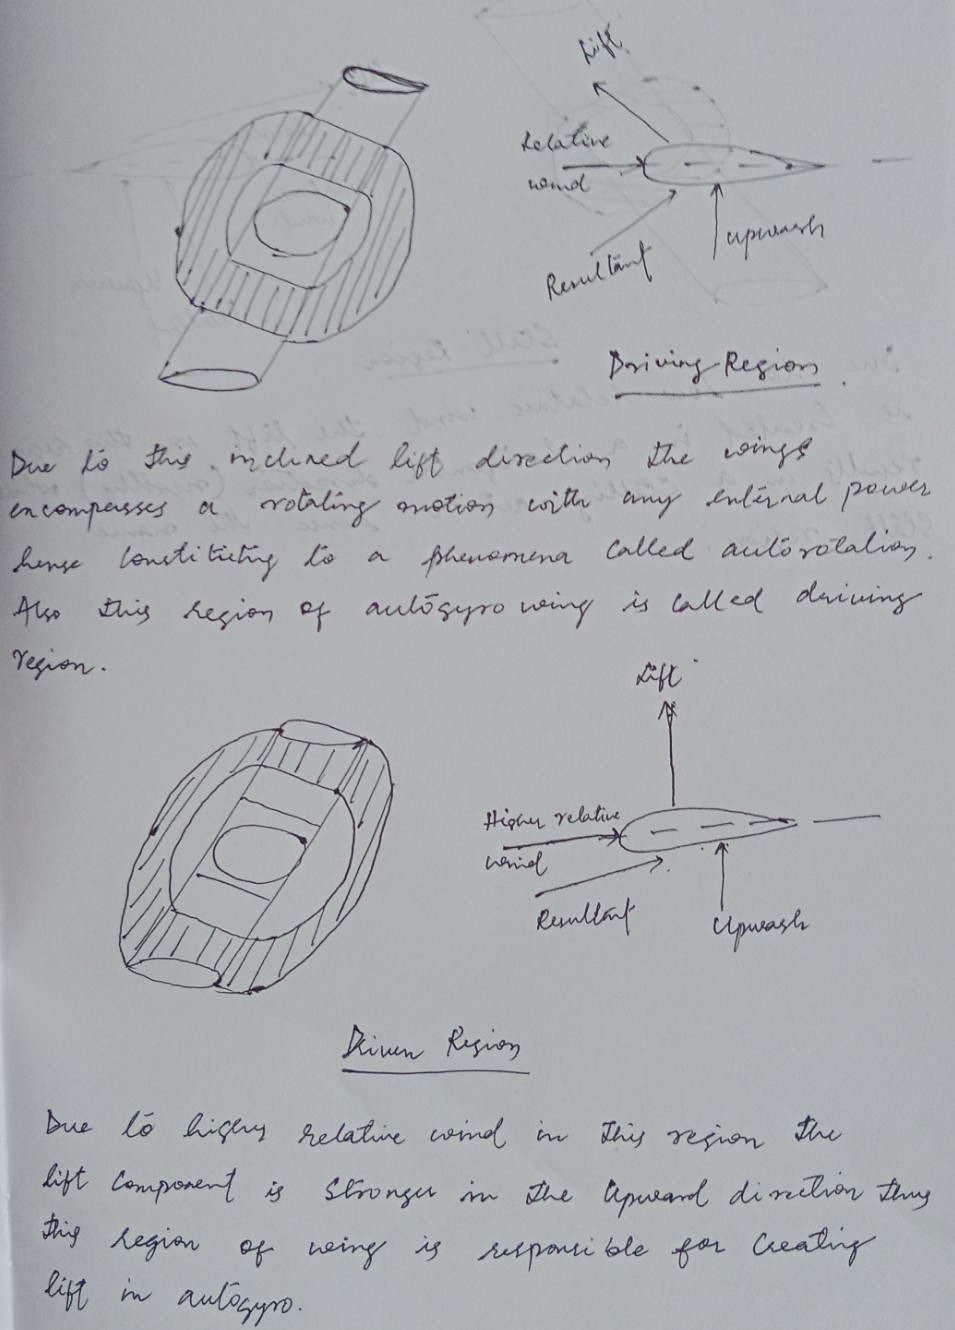 Lift
Relative
wind
Resultant
upwash
Driving Region.
Due to this inclined lift direction the wings
encompasses a rotating motion with any external power
hense constituting to a phenomena called autorotation.
Also this region of autogyro wing is called driving
region.
Lift
Higher relative
wind
Resultant
Upwash
Driven Region
Due to higher relative wind in this region the
lift component is stronger in the upward direction thus
this region of wing is responsible for creating
lift in autogyro.